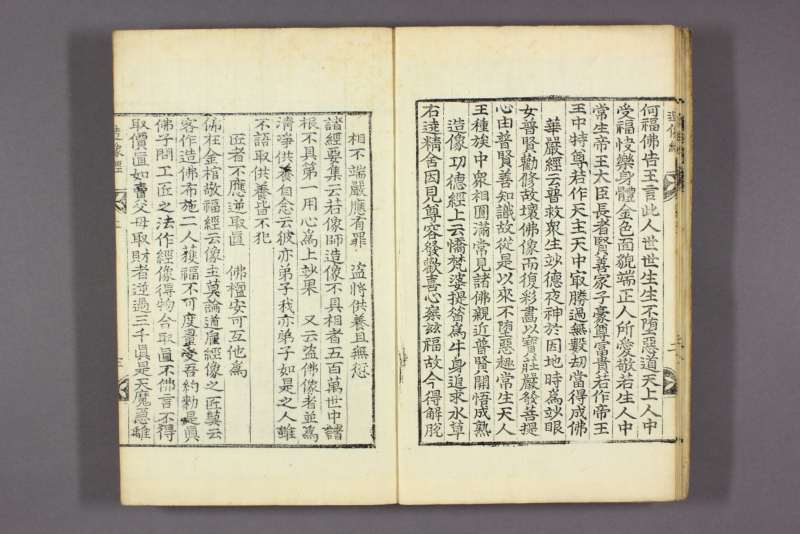 何福佛告王言此人世世生生不墮惡道天上人中
受福快樂身體金色面貌端正人所愛敬若生人中
常生帝王大臣長者賢善家子豪尊富貴若作帝王
王中特尊若作天王天中冣勝過無數劫當得成佛
華嚴經云普救衆生妙德夜神於因地時爲妙眼
女普賢勸修故壞佛像而復彩畵以寶莊嚴發菩提
心由普賢善知識故從是以來不墮惡趣常生天人
王種族中衆相圓滿常見諸佛親近普賢開悟成熟
造像功德經上云憍梵波提昔爲牛身追求水草
右遶精舍因見尊容發歡喜心乘玆福故今得解脫
相不端嚴應有罪 盜將供養且無愆
諸經要集云若像師造像不具相者五百萬世中諸
根不具第一用心爲上妙果 又云盜佛像者並爲
淸淨供養自念云彼亦弟子我亦弟子如是之人雖
不語取供養皆不犯
匠者不應逆取直 佛檀安可互他爲
佛在金棺敬福經云像主莫論道雇經像之匠莫云
客作造佛布施二人獲福不可度量受吾約勅是眞
佛子問工匠之法作經像得物合取直不佛言不得
取價直如賣父母取財者逆過三千眞是天魔急離
造像經
三